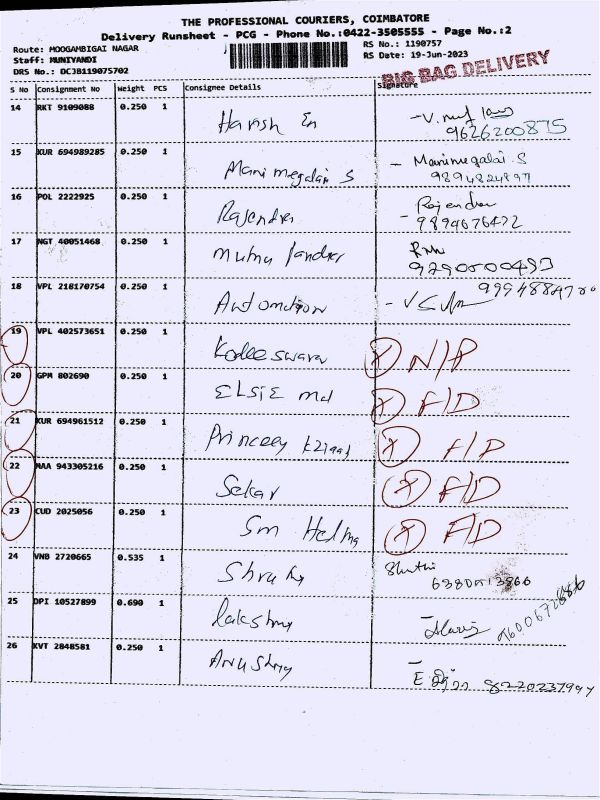 THE PROFESSIONAL COURIERS, COIMBATORE
Delivery Runsheet - PCG - Phone No.:0422-3505555 - Page No.:2
Route: MOOGAMBIGAI NAGAR RS No.: 1190757
Staff: MUNIYANDI RS Date: 19-Jun-2023
DRS No.: DCJB119075702 BIG BAG DELIVERY
S No Consignment No Weight PCS Consignee Details Signature
14 RKT 9109088 0.250 1 Harish
9626200875
15 KUR 694989285 0.250 1 Manimegalai S - Manimegalai S
9894824897
16 POL 2222925 0.250 1 Rajendra Rajendra
- 9894676472
17 NGT 40051468 0.250 1
18 VPL 218170754 0.250 1 Automation
19 VPL 402573651 0.250 1 Kodeeswara X N/P
20 GPM 802690 0.250 1 ELSIE X F/D
21 KUR 694961512 0.250 1 X F/D
22 MAA 943305216 0.250 1 Sekar X F/D
23 CUD 2025056 0.250 1 Sm X F/D
24 VNB 2720665 0.535 1
25 DPI 10527899 0.690 1
26 KVT 2848581 0.250 1